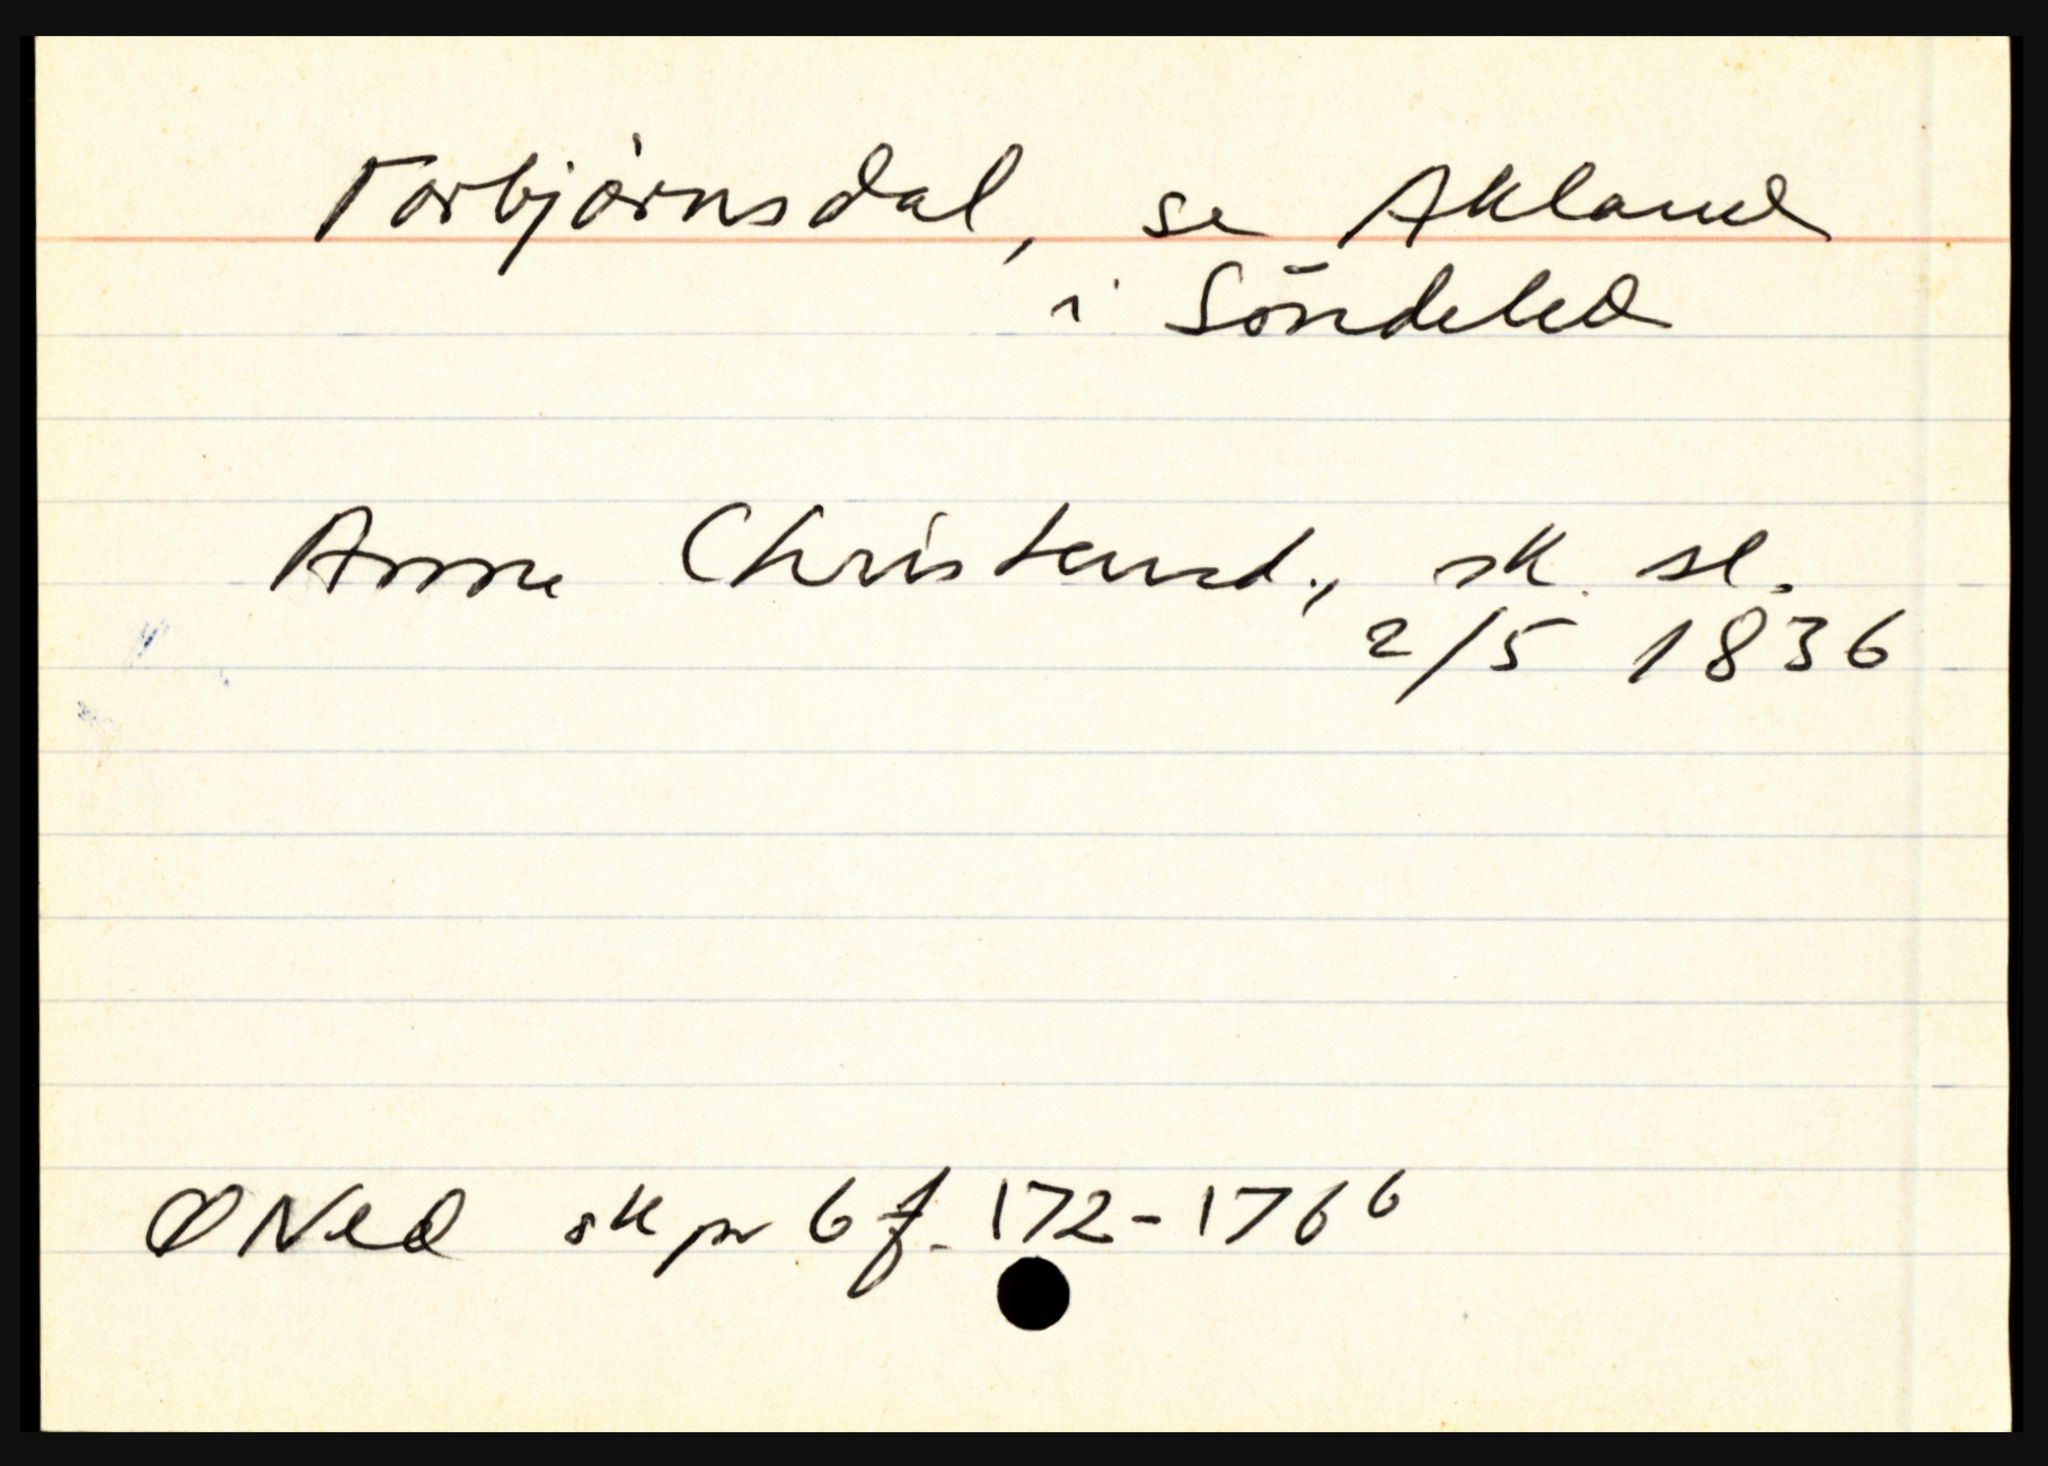 Torbjørnsdal, se Akland
i Söndeled
Anne Christensd., sk. sl.
2/5 1836
ØNed sk pr 6 f. 172-176b